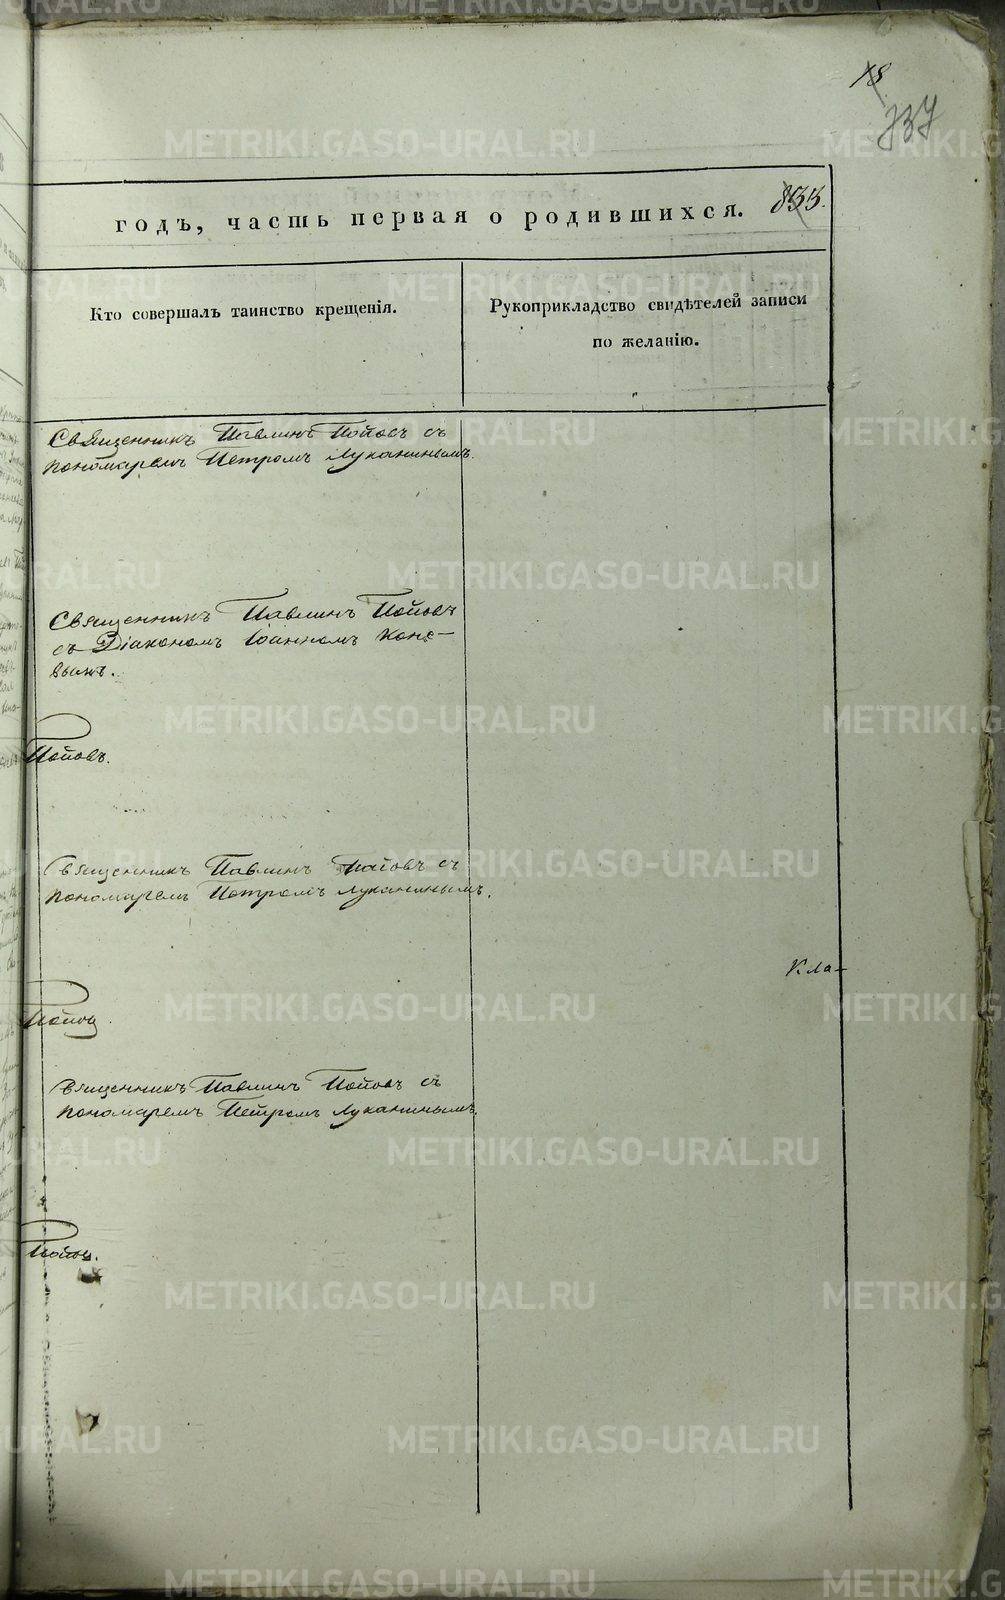 18
737
годъ, часть первая о родившихся.
833.
Кто совершалъ таинство крещенія.
Рукоприкладство свидѣтелей записи
по желанію.
Священникъ Павлинъ Поповъ съ
пономаремъ Петромъ Луканинымъ.
Священникъ Павлинъ Поповъ
съ Діакономъ Іоанномъ Коне-
вымъ.
Поповъ.
Священникъ Павлинъ Поповъ съ
пономаремъ Петромъ Луканинымъ.
Кла-
Попов
Священникъ Павлинъ Поповъ съ
пономаремъ Петромъ Луканинымъ.
Попов.
METRIKI.GASO-URAL.RU